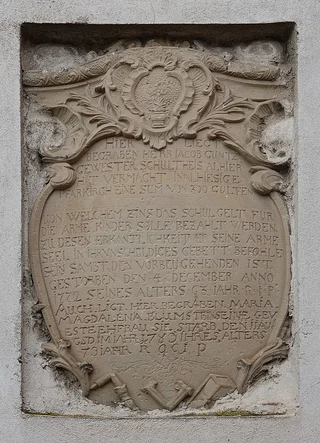 HIER LIGT
BEGRABEN HERR JACOB GUNTZ
GEWESTER SCHULTHEIS
VERMACHT HIESIGE
PFARKIRCH EINE SUM VON 300 GULTEN
VON WELCHEM ZINS DAS SCHULGELT FUR
DIE ARME KINDER SOLLE BEZAHLT WERDEN
ZU DESSEN ERKANTLICHKEIT ER SEINE ARME
SEEL IN IHR UNSHULDIGES GEBETT BEFOHLE
SAMBT DES VORBEIGEHENDEN IST
GESTORBEN DEN 4 DEZEMBER ANNO
1772 SEINES ALTERS 63 IAHR R I P
AUCH LIGT HIER BEGRABEN MARIA
MAGDALENA SEINE GEV
ESTE EHFRAU SIE STARB DEN
IM IAHR 1783 IHRES ALTERS
73 IAHR R I P